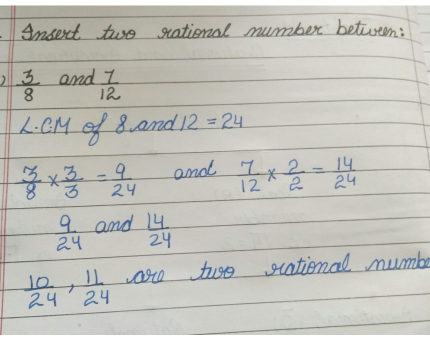 Insert two rational number between:
) 3/8 and 7/12
L.C.M of 8 and 12 = 24
3/8 × 3/3 = 9/24 and 7/12 × 2/2 = 14/24
9/24 and 14/24
10/24, 11/24 are two rational numbe